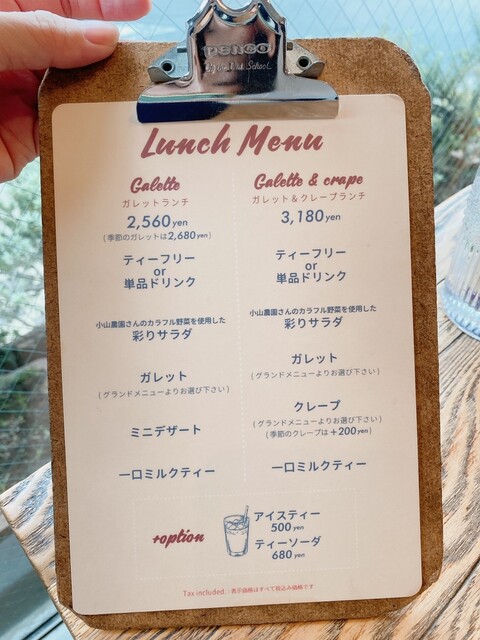 PENCO
Lunch Menu
Galette
ガレットランチ
2,560 yen
(季節のガレットは2,680 yen)
ティーフリー
or
単品ドリンク
小山農園さんのカラフル野菜を使用した
彩りサラダ
ガレット
(グランドメニューよりお選び下さい)
ミニデザート
一口ミルクティー
Galette & crape
ガレット&クレープランチ
3,180 yen
ティーフリー
or
単品ドリンク
小山農園さんのカラフル野菜を使用した
彩りサラダ
ガレット
(グランドメニューよりお選び下さい)
クレープ
(グランドメニューよりお選び下さい)
(季節のクレープは+200 yen)
一口ミルクティー
+option
アイスティー
500 yen
ティーソーダ
680 yen
Tax included. 表示価格はすべて税込み価格です